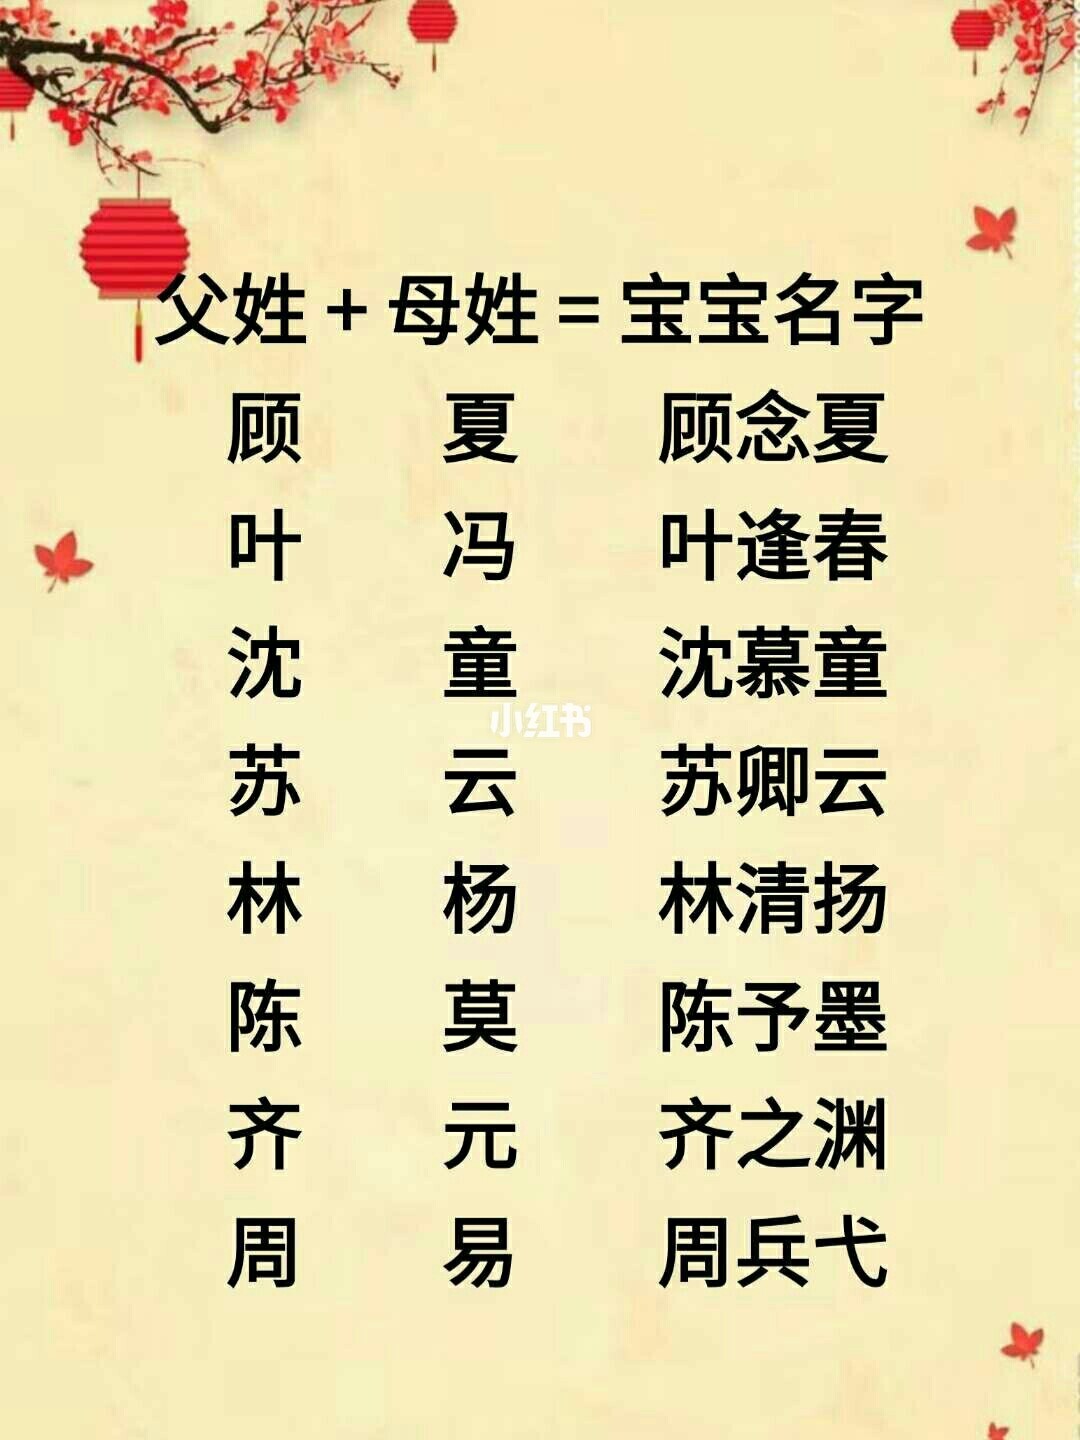 父姓+母姓=宝宝名字
顾 夏 顾念夏
叶 冯 叶逢春
沈 童 沈慕童
小红书
苏 云 苏卿云
林 杨 林清扬
陈 莫 陈予墨
齐 元 齐之渊
周 易 周兵弋